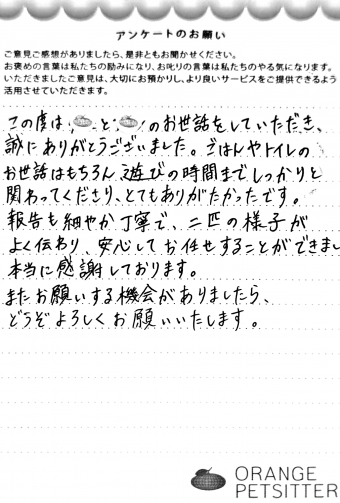 アンケートのお願い
ご意見ご感想がありましたら、是非ともお聞かせください。
お褒めの言葉は私たちの励みになり、お叱りの言葉は私たちのやる気になります。
いただきましたご意見は、大切にお預かりし、より良いサービスをご提供できるよう
活用させていただきます。
この度は と のお世話をしていただき、
誠にありがとうございました。ごはんやトイレの
お世話はもちろん遊びの時間までしっかりと
関わってくださり、とてもありがたかったです。
報告も細やか丁寧で、二匹の様子が
よく伝わり、安心してお任せすることができまし
本当に感謝しております。
またお願いする機会がありましたら、
どうぞよろしくお願いいたします。
ORANGE
PETSITTER